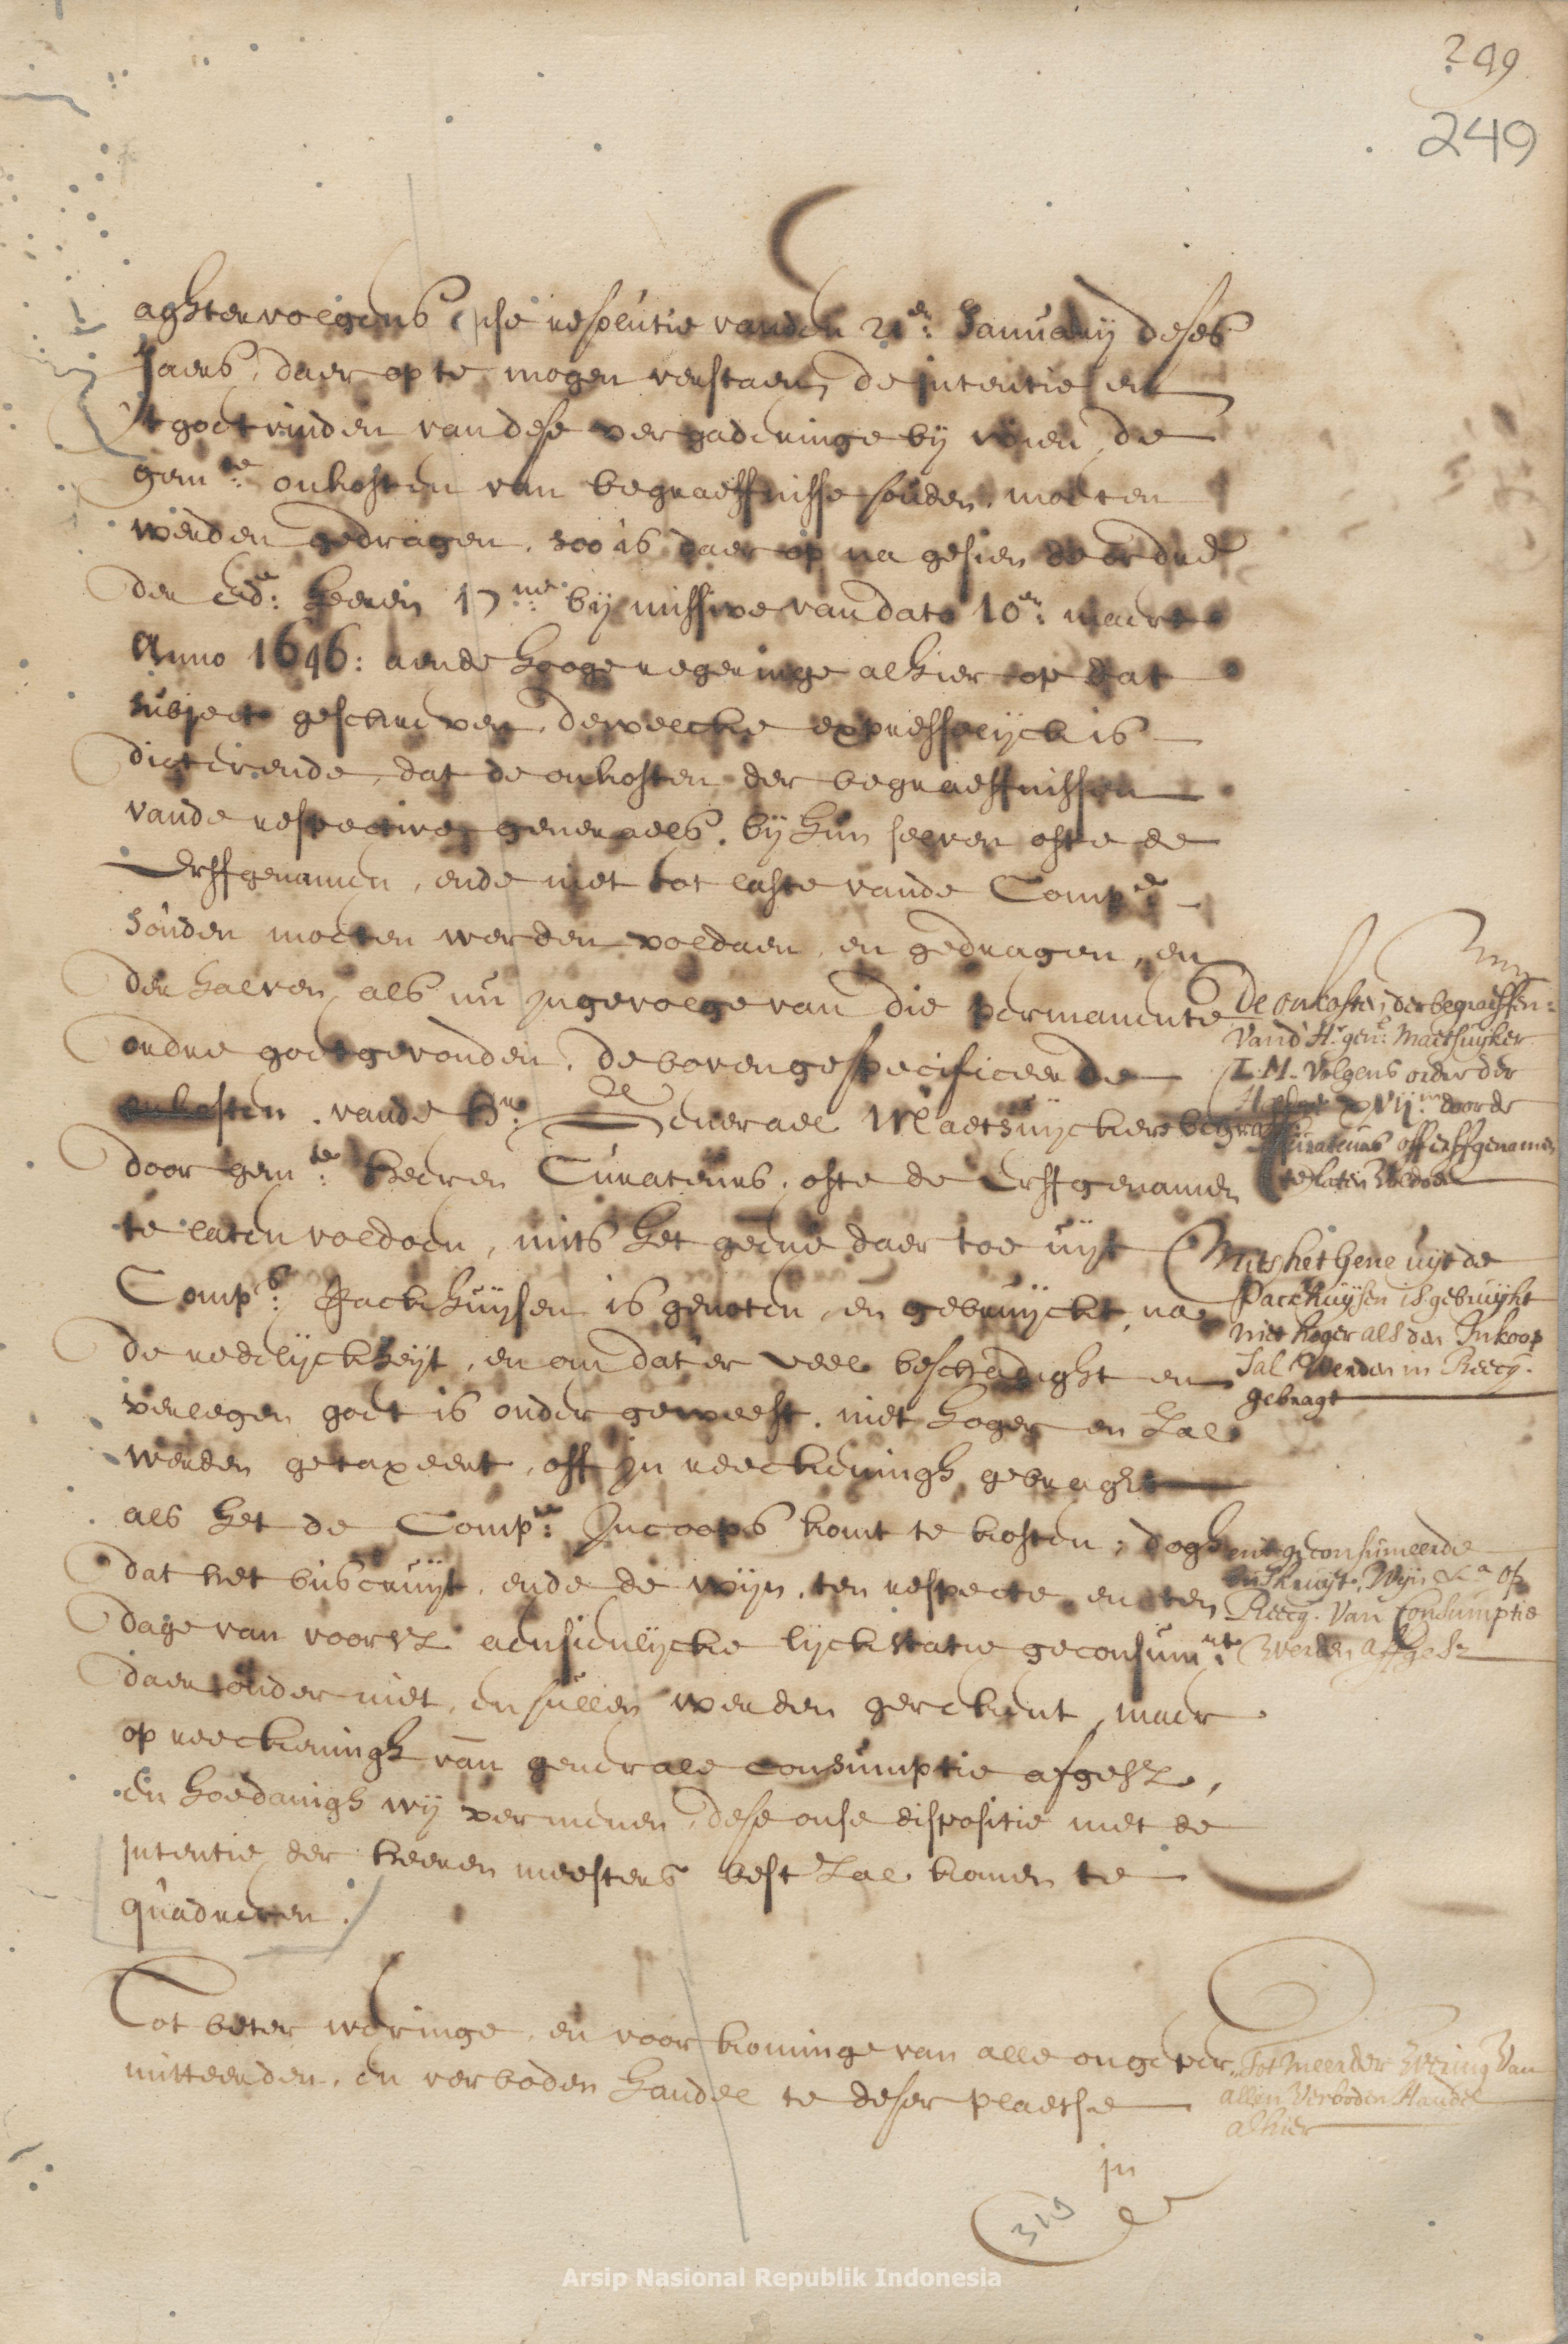 249
249
aghtervolgens onse resolutie vanden 21en: January deses
Jaers, daer op te mogen verstaen, de intentie en
't goetvinden van dese vergaderinge by wien, de
gemte: onkosten van begraeffnisse souden moeten
werden gedragen, soo is daer op na gesien de ordre
der Ede: Heeren 17ne: bij missive van dato 10en: maert
Anno 1646: aende Hooge regeringe alhier op dat
subject geschreven, dewelcke expresselyck is
dicterende, dat de onkosten der begraeffnissen
vande respective generaels, bij hun selven ofte de
Erffgenamen, ende niet tot laste vande Compe
souden moeten werden voldaen, en gedragen, en
derhalven, als nu in gevolge van die permanente
ordre goetgevonden, de bovengespecificeerde
onkosten, vande Hr: Generael Maetsuyckers begra
door gemte: Heeren Curateurs, ofte de Erffgenamen
te laten voldoen, mits het geene daer toe uyt
Comps: Packhuysen is genoten, en gebruyckt, na
de redelyckheyt, en om dat'er veel beschadight en
verlegen goet is onder geweest, niet hoger en zal
werden getaxeert, off in reeckeningh gebraght
als het de Compe: Incoops komt te kosten; dogh
dat het buscruyt, ende de wijn, ten respecte en ten
dage van voorsz aensienlycke lyckstatie geconsumt:
daer onder niet, en sullen werden gerekent, maer
op reeckeningh van generale consumptie afgesz,
en hoedanigh wij vermenen, dese onse dispositie met de
intentie der Heeren meesters best zal komen te
quadreren.
Tot beter weringe, en voorkominge van alle ongeper
mitteerden, en verboden handel te deser plaetse
in
De onkosten, der begraeffen:
Vand' Hr. genl: Maetsuyker
Z: M. Volgens order der
XVIIen door de
Curateurs off erffgenamen
te laten Voldoen
Mits het gene uyt de
Packhuysen is gebruykt
niet hoger als den Inkoop
Sal Werden in Reecq.
gebragt
en 't geconsumeerde
buskruyt, Wyn &a op
Reecq. Van Consumptie
Werden affgesz
Tot meerder Wering Van
allen Verboden Handel
alhier
319
Arsip Nasional Republik Indonesia